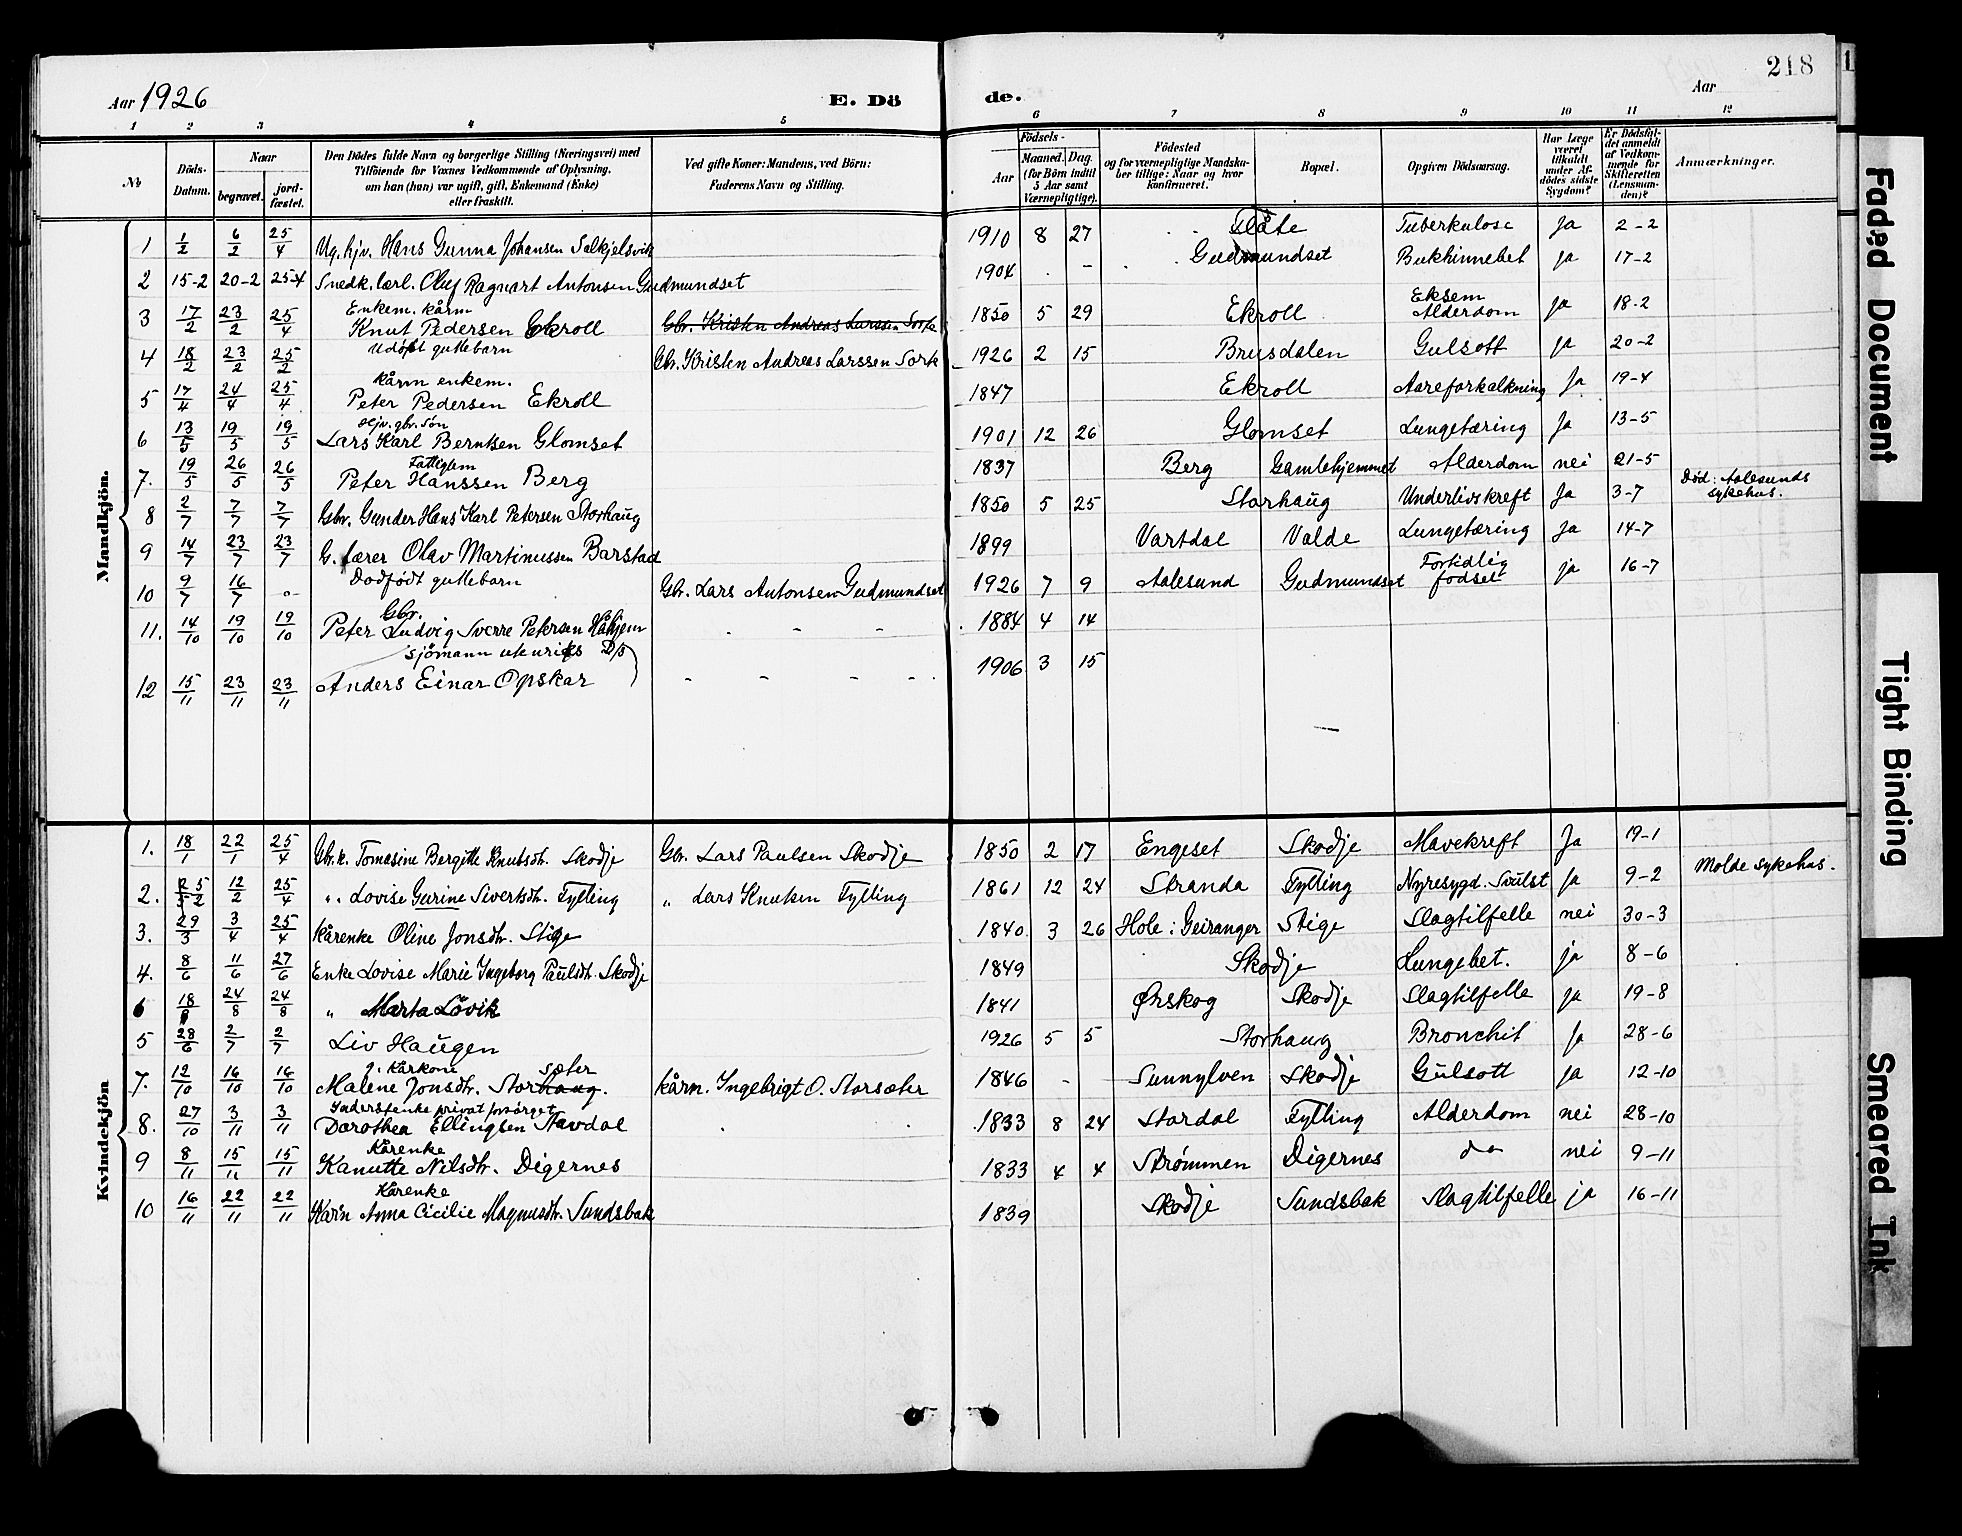 Aar 1926
E. Dö
de.
Aar
218
1 2 3 4 5 6 7 8 9 10 11 12
No
Döds-Datum.
Naar
begravet.
jord-fæstet.
Den Dödes fulde Navn og borgerlige Stilling (Næringsvei) med
Tilföiende for Voxnes Vedkommende af Oplysning,
om han (hun) var ugift, gift, Enkemand (Enke)
eller fraskilt.
Ved gifte Koner: Mandens, ved Börn:
Faderens Navn og Stilling.
Födsels-
Aar
Maaned. Dag.
(for Börn indtil
5 Aar samt
Værnepligtige).
Födested
og for værnepligtige Mandska-
ber tillige: Naar og hvor
konfirmeret.
Bopæl.
Opgiven Dödsaarsag.
Har Læge
været
tilkaldt
under Af-
dödes sidste
Sygdom?
Er Dödsfal-
det anmeldt
af Vedkom-
mende for
Skifteretten
(Lensman-
den)?
Anmærkninger.
Mandkjön.
1 1/2 6/2 25/4 Ug. hjv. Hans Gunna Johansen Salkjelsvik 1910 8 27 Flåte Tuberkulose Ja 2-2
2 15-2 20-2 25-4 Snedk. lærl. Oluf Ragnart Antonsen Gudmundset 1904 - Gudmundset Bukhinnebet ja 17-2
3 17/2 23/2 25/4 Enkem. kårm Knut Pedersen Ekroll Gbr. Kristen Andreas Larssen Sorte 1850 5 29 Ekroll Eksem Alderdom ja 18-2
4 18/2 23/2 25/2 Udöbt guttebarn Gbr. Kristen Andreas Larssen Sorte 1926 2 15 Brusdalen Gulsott ja 20-2
5 17/4 24/4 25/4 kårm enkem. Peter Pedersen Ekroll 1847 Ekroll Aareforkalkning Ja 19-4
6 13/5 19/5 19/5 Hjv. gbr. Søn Lars Karl Berntsen Glomset 1901 12 26 Glomset Lungetæring Ja 13-5
7. 19/5 26/5 26/5 Fattiglem Peter Hanssen Berg 1837 Berg Gamlehjemmet Alderdom nei 21-5
8 2/7 7/7 7/7 Gbr. Gunder Hans Karl Petersen Storhaug 1850 5 25 Storhaug Underlivskreft Ja 3-7 Död: Aalesunds sykehus.
9 14/7 23/7 23/7 G. færer Olav Martinussen Barstad 1899 Vartdal Valde Lungetæring Ja 14-7
10 9/7 16/7 -"- Dodfödt guttebarn Gbr. Lars Antonsen Gudmundset 1926 7 9 Aalesund Gudmundset Fortidlig födsel ja 16-7
11. 14/10 19/10 19/10 Gbr. Peter Ludvig Sverre Petersen Håhjem - - - 1884 4 14
12 15/11 23/11 23/11 sjömann utenriks D/S Anders Einar Opskar - - - - 1906 3 15
Kvindekjön
1. 18/1 22/1 25/4 Gbr.k. Tomasine Bergitte Knutsdtr. Skodje Gbr. Lars Paulsen Skodje 1850 2 17 Engeset Skodje Mavekreft Ja 19-1
2. 12/2 25/4 ". Lovise Gurine Sivertsdtr. Fylling " Lars Knutsen Fylling 1861 12 24 Stranda Fylling Nyresygd. Svulst Ja 9-2 Molde sykehus.
3. 29/3 3/4 25/4 kårenke Oline Jonsdtr. Stige 1840 3 26 Hole i Geiranger Stige Slagtilfelle nei 30-3
4. 8/6 11/6 27/6 Enke Lovise Marie Ingeborg Paulsdtr. Skodje 1849 Skodje Lungebet. ja 8-6
6 18/8 24/8 24/8 " Marta Lövik 1841 Ørskog Skodje Slagtilfelle ja 19-8
5 28/6 2/7 2/7 Liv Haugen 1926 5 5 Storhaug Bronchit Ja 28-6
7. 12/10 16/10 16/10 g. kårkone Malene Jonsdtr. Storhaug. sæter kårm. Ingebrigt O. Storsæter 1846 - Sunnylven Skodje Gulsott ja 12-10
8. 27/10 3/11 3/11 Inderstenke privat forsörget Dorothea Ellingsen Stavdal 1833 8 24 Stordal Fylling Alderdom nei 28-10
9 8/11 15/11 15/11 Kårenke Kanutte Nilsdtr. Digernes 1833 4 4 Strömmen Digernes do nei 9-11
10 16/11 22/11 22/11 Kårenke Karin Anna Cicilie Magnusdtr. Sundsbak 1839 Skodje Sundsbak Slagtilfelle ja 16-11
Faded Document
Tight Binding
Smeared Ink